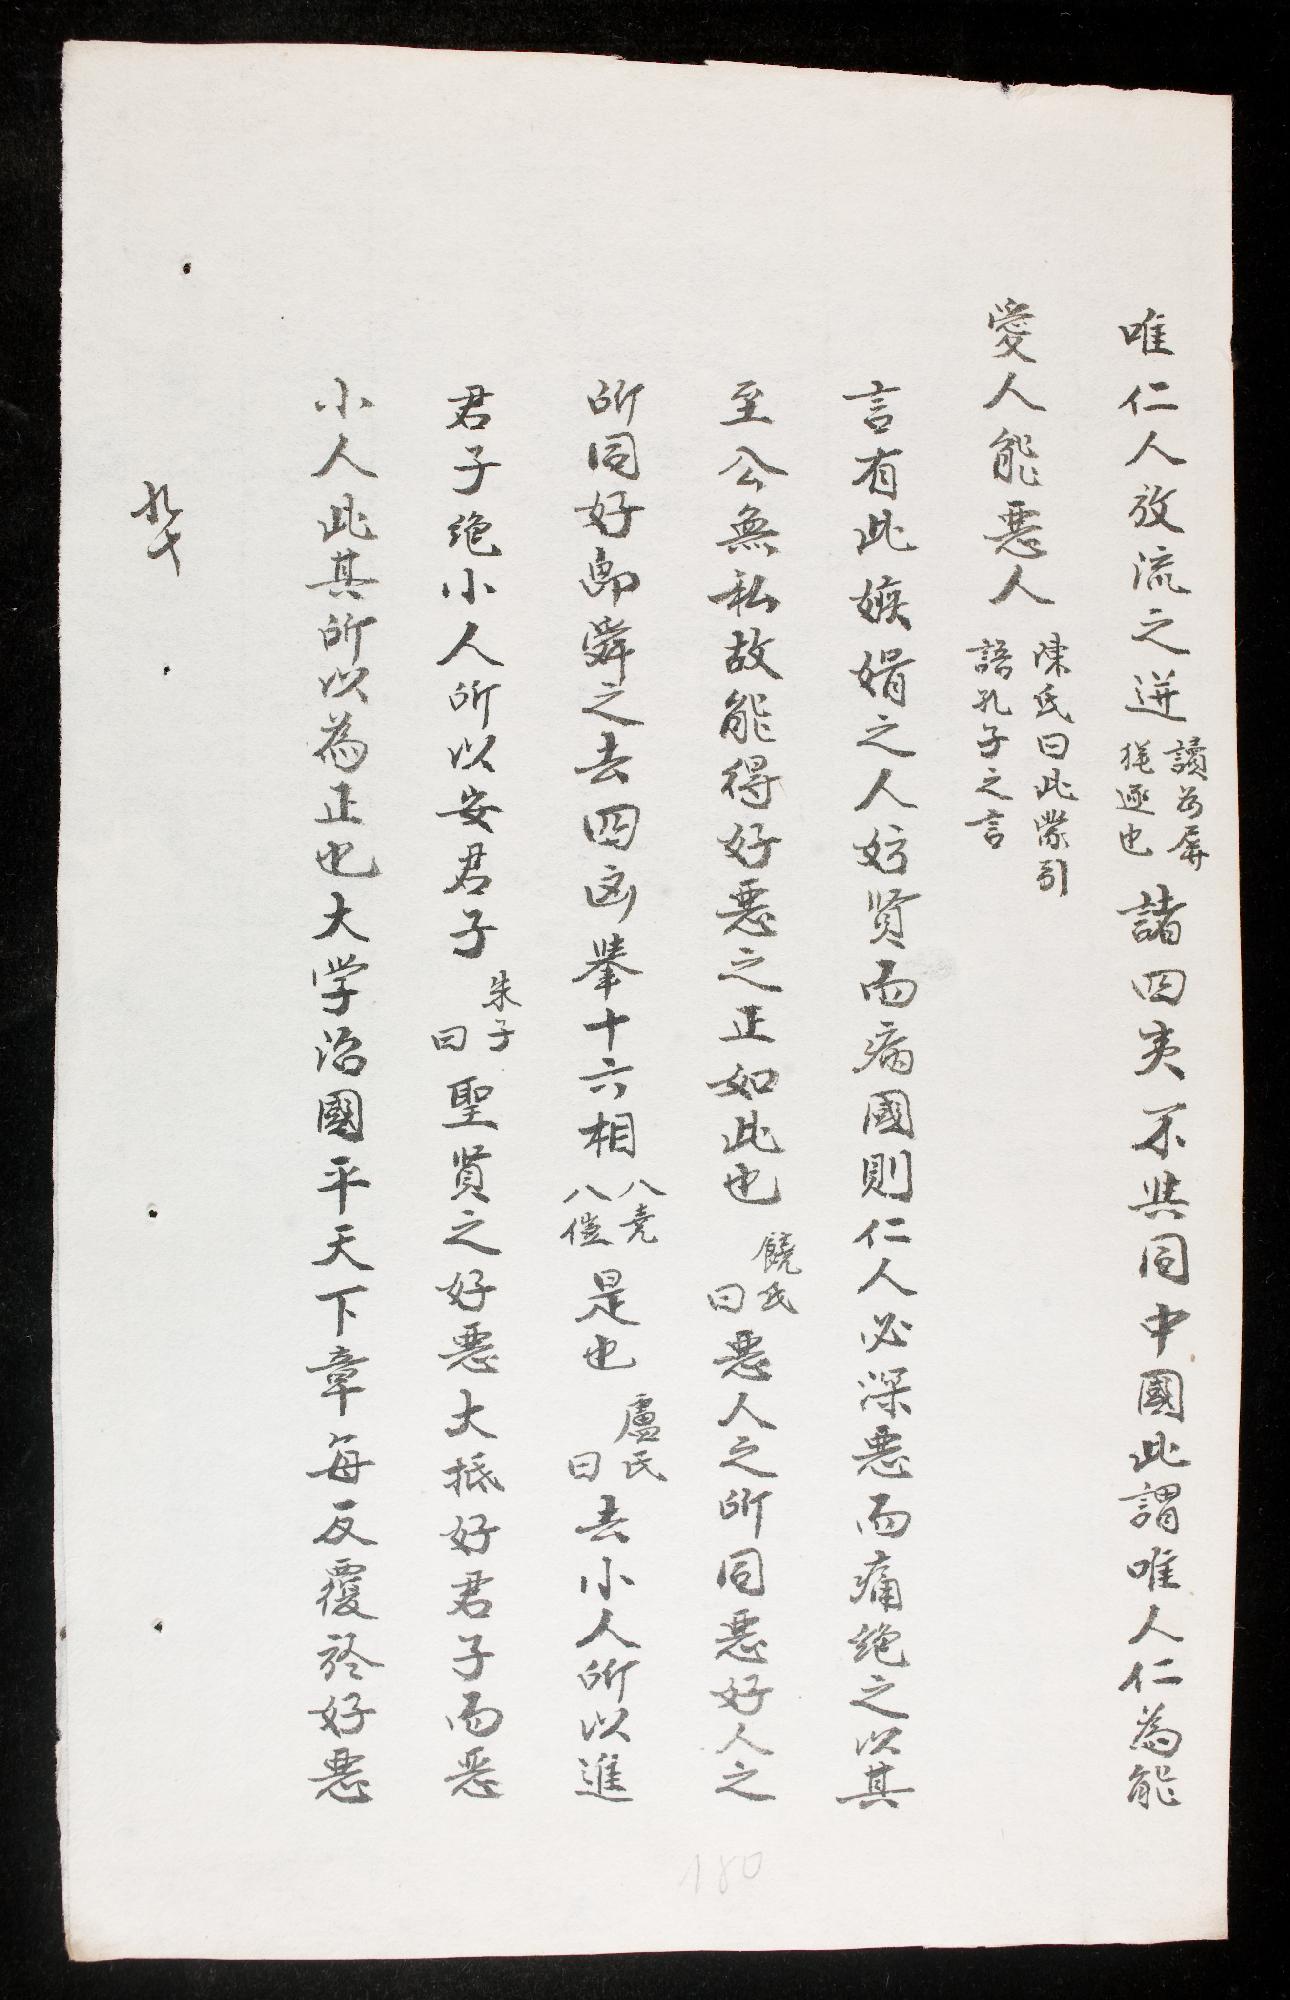 唯仁人放流之迸讀為屏猶逐也諸四夷不與同中國此謂唯人仁為能
愛人能惡人陳氏曰此蒙引語孔子之言
言有此嫉媢之人妨贤而病國則仁人必深惡而痛絶之以其
至公無私故能得好惡之正如此也饒氏曰惡人之所同惡好人之
所同好即舜之去四凶舉十六相八元八愷是也盧氏曰去小人所以進
君子絶小人所以安君子朱子曰聖賢之好惡大抵好君子而惡
小人此其所以為正也大学治國平天下章每反覆於好惡
九十
180